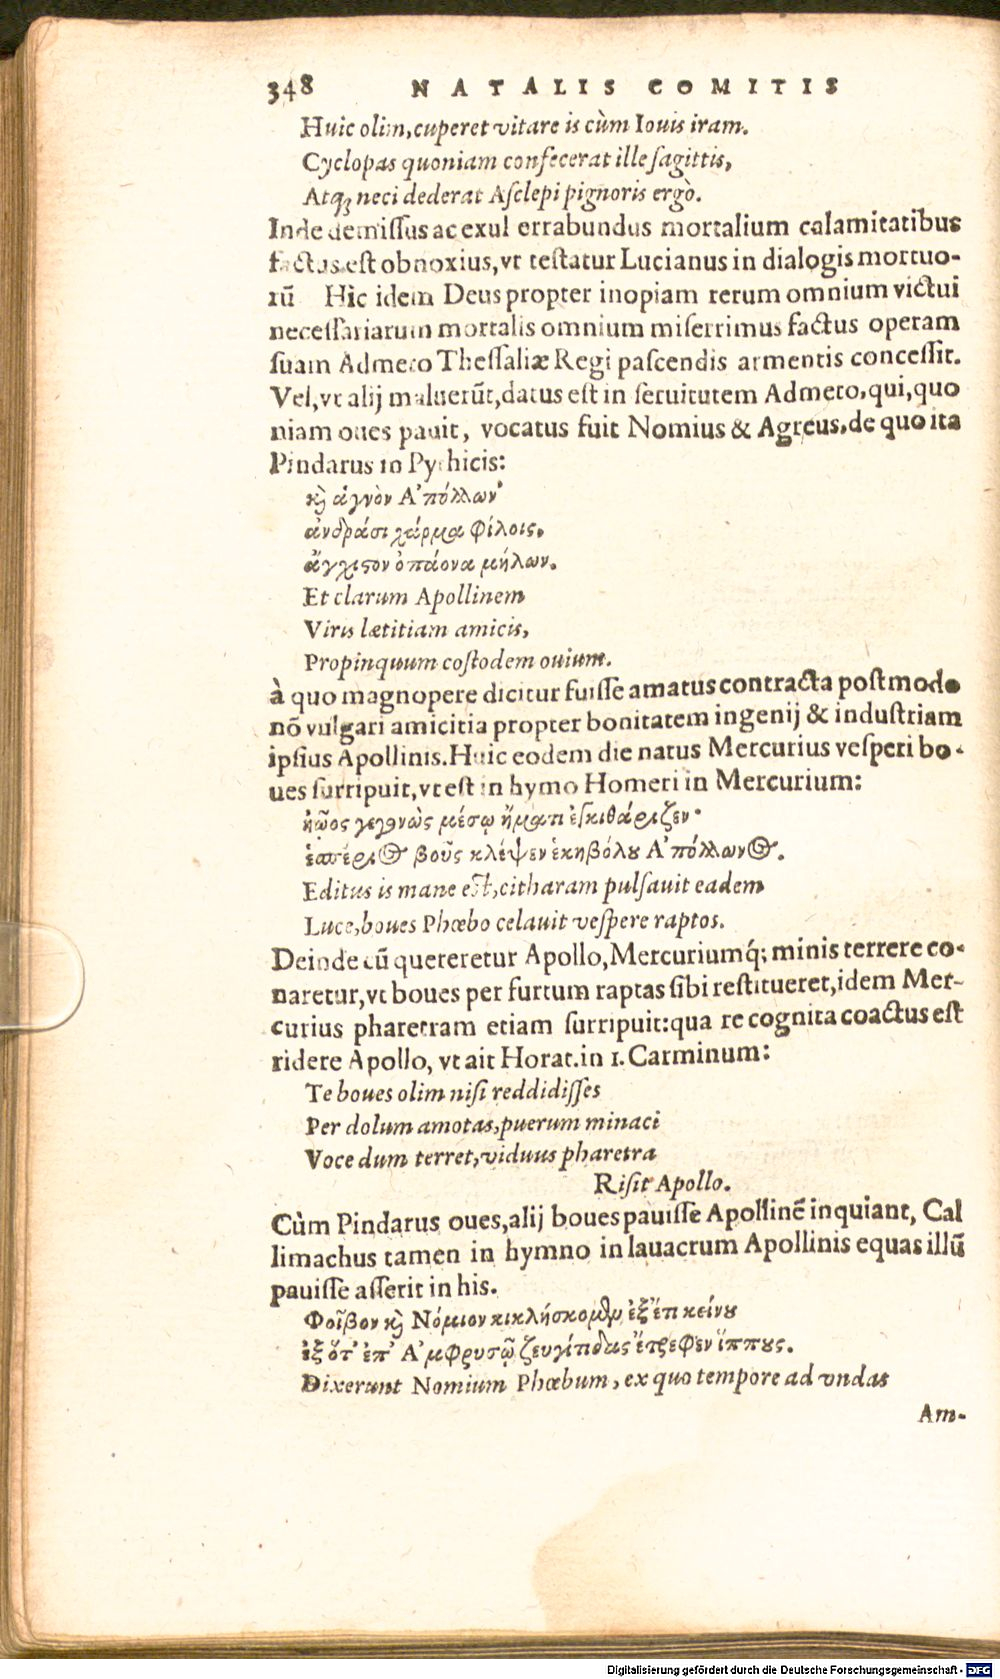 348 NATALIS COMITIS
Huic olim, cuperet vitare is cùm Iouis iram.
Cyclopas quoniam confecerat ille sagittis,
Atq́; neci dederat Asclepi pignoris ergò.
Inde demissus ac exul errabundus mortalium calamitatibus
factus est obnoxius, vt testatur Lucianus in dialogis mortuo-
rū Hic idem Deus propter inopiam rerum omnium victui
necessariarum mortalis omnium miserrimus factus operam
suam Admeto Thessaliæ Regi pascendis armentis concessit.
Vel, vt alij maluerūt, datus est in seruitutem Admeto, qui, quo
niam oues pauit, vocatus fuit Nomius & Agreus, de quo ita
Pindarus in Pythicis:
κὶ ἁγνὸν Α᾽πόλλων᾽
ἀνδράσι χάρμα φίλοις,
ἄγχιστον ὀπάονα μήλων.
Et clarum Apollinem
Viris lætitiam amicis,
Propinquum costodem ouium.
à quo magnopere dicitur fuisse amatus contracta postmodo
nō vulgari amicitia propter bonitatem ingenij & industriam
ipsius Apollinis. Huic eodem die natus Mercurius vesperi bo-
ues surripuit, vt est in hymo Homeri in Mercurium:
ἠῶος γεγονὼς μέσῳ ἤματι ἐγκιθάριζεν·
ἑσπέριος βοῦς κλέψεν ἑκηβόλου Α᾽πόλλωνος.
Editus is mane est, citharam pulsauit eadem
Luce, boues Phœbo celauit vespere raptos.
Deinde cū quereretur Apollo, Mercuriumq́; minis terrere co-
naretur, vt boues per furtum raptas sibi restitueret, idem Mer-
curius pharetram etiam surripuit: qua re cognita coactus est
ridere Apollo, vt ait Horat. in 1. Carminum:
Te boues olim nisi reddidisses
Per dolum amotas, puerum minaci
Voce dum terret, viduus pharetra
Risit Apollo.
Cùm Pindarus oues, alij boues pauisse Apollinē inquiant, Cal
limachus tamen in hymno in lauacrum Apollinis equas illū
pauisse asserit in his.
Φοῖβον κὶ Νόμιον κικλήσκομεν ἐξἔτι κείνου
ἐξ ὅτ᾽ ἐπ᾽ Α᾽μφρυσῷ ζευγίτιδας ἔτρεφεν ἵππους.
Dixerunt Nomium Phœbum, ex quo tempore ad vndas
Am-
Digitalisierung gefördert durch die Deutsche Forschungsgemeinschaft - DFG